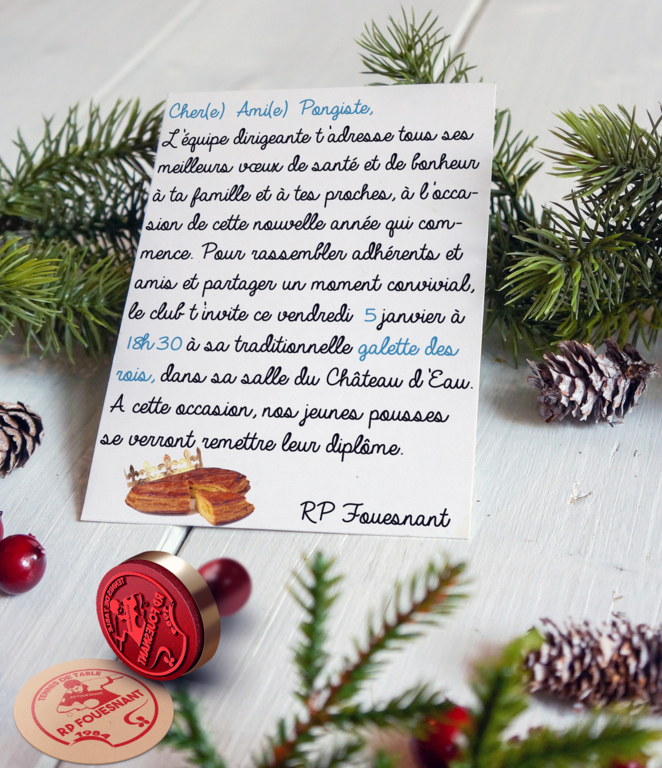 Cher(e) Ami(e) Pongiste,
L'équipe dirigeante t'adresse tous ses
meilleurs vœux de santé et de bonheur
à ta famille et à tes proches, à l'occa-
sion de cette nouvelle année qui com-
mence. Pour rassembler adhérents et
amis et partager un moment convivial,
le club t'invite ce vendredi 5 janvier à
18h30 à sa traditionnelle galette des
rois, dans sa salle du Château d'Eau.
A cette occasion, nos jeunes pousses
se verront remettre leur diplôme.
RP Fouesnant
TENNIS DE TABLE
RP FOUESNANT
1984